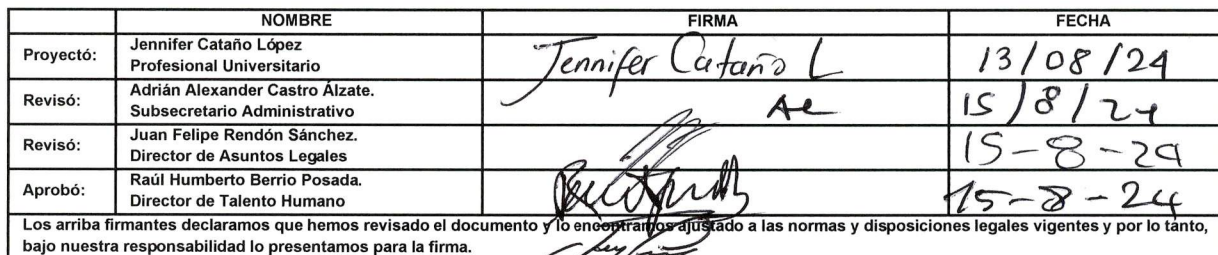 NOMBRE FIRMA FECHA
Proyectó: Jennifer Cataño López
Profesional Universitario Jennifer Cataño L 13/08/24
Revisó: Adrián Alexander Castro Álzate.
Subsecretario Administrativo 15/8/24
Revisó: Juan Felipe Rendón Sánchez.
Director de Asuntos Legales 15-8-24
Aprobó: Raúl Humberto Berrio Posada.
Director de Talento Humano 15-8-24
Los arriba firmantes declaramos que hemos revisado el documento y lo encontramos ajustado a las normas y disposiciones legales vigentes y por lo tanto,
bajo nuestra responsabilidad lo presentamos para la firma.